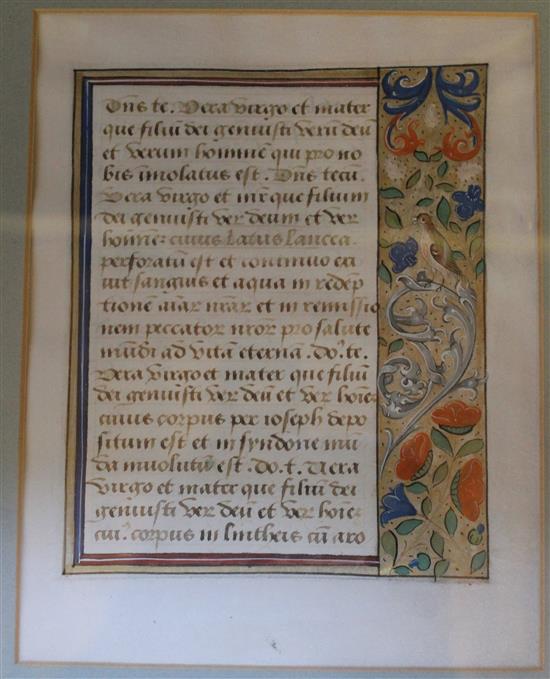 Dn̄s te. Vera virgo et mater
que filiū dei genuisti verū deū
et verum hominē qui pro no
bis imolatus est. Dn̄s tecū.
Vera virgo et mr̄e que filium
dei genuisti ver deum et ver
hominē: cuius latus lancea
perforatū est et continuo exi
uit sanguis et aqua in redēp
tionē aīar̄ nr̄ar̄ et in remissio
nem peccator̄ nror̄ pro salute
mūdi ad vitā eternā. do.̄ te.
Vera virgo et mater que filiū
dei genuisti ver deū et ver hoīe:
cuius corpus per ioseph depo
situm est et in syndone mū
da inuolutū est. do. t. Vera
virgo et mater que filiū dei
genuisti ver deū et ver hoīe:
cui.' corpus in lintheis cū aro